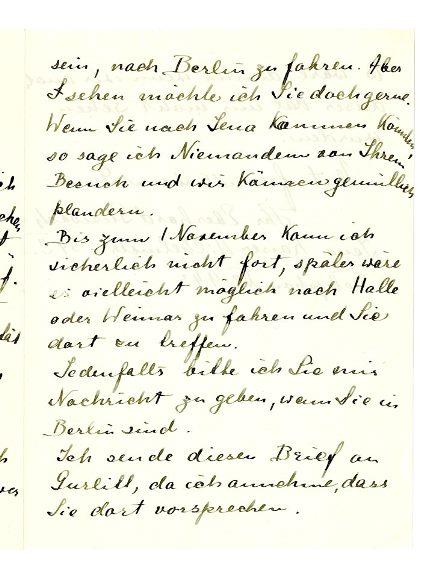 sein, nach Berlin zu fahren. Aber
sehen möchte ich Sie doch gerne.
Wenn Sie nach Jena kommen könnten,
so sage ich Niemandem von Ihrem
Besuch und wir können gemütlich
plaudern.
Bis zum 1 November kann ich
sicherlich nicht fort, später wäre
es vielleicht möglich nach Halle
oder Weimar zu fahren und Sie
dort zu treffen.
Jedenfalls bitte ich Sie mir
Nachricht zu geben, wenn Sie in
Berlin sind.
Ich sende diesen Brief an
Gurlitt, da ich annehme, dass
Sie dort vorsprechen.